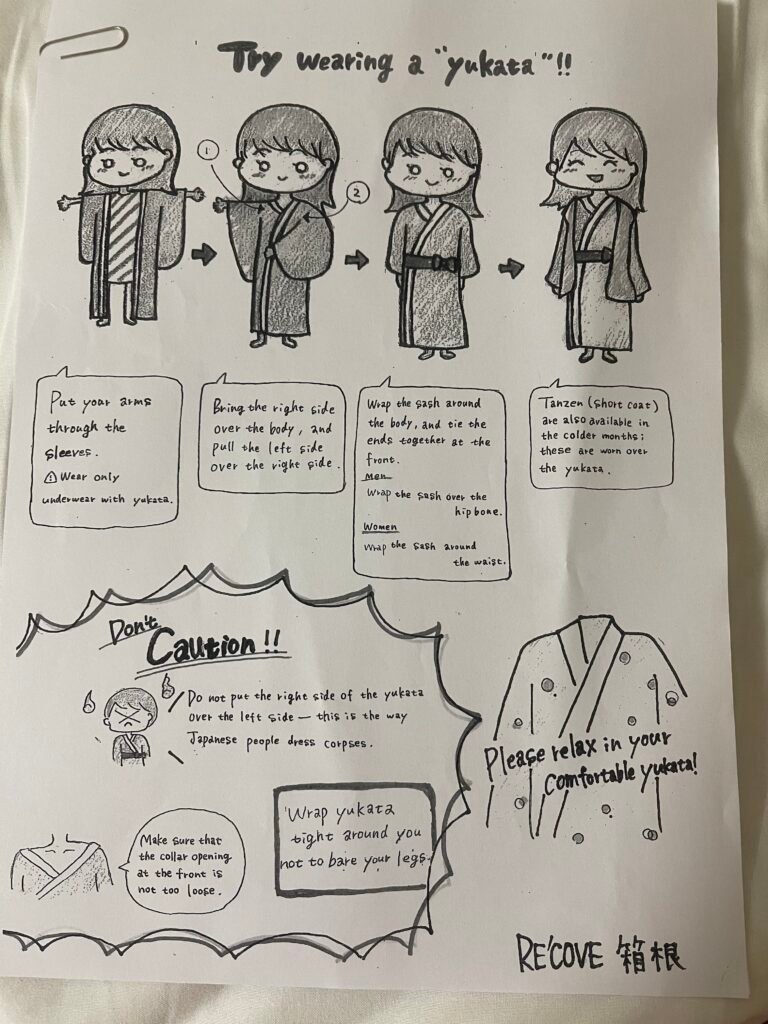 Try wearing a "yukata"!!
1
2
Put your arms
through the
sleeves.
⚠ Wear only
underwear with yukata.
Bring the right side
over the body, and
pull the left side
over the right side.
Wrap the sash around
the body, and tie the
ends together at the
front.
Men
Wrap the sash over the
hip bone.
Women
Wrap the sash around
the waist.
Tanzen (short coat)
are also available in
the colder months;
these are worn over
the yukata.
Don't
Caution!!
Do not put the right side of the yukata
over the left side — this is the way
Japanese people dress corpses.
Make sure that
the collar opening
at the front is
not too loose.
Wrap yukata
tight around you
not to bare your legs.
Please relax in your
comfortable yukata!
RE'COVE 箱根